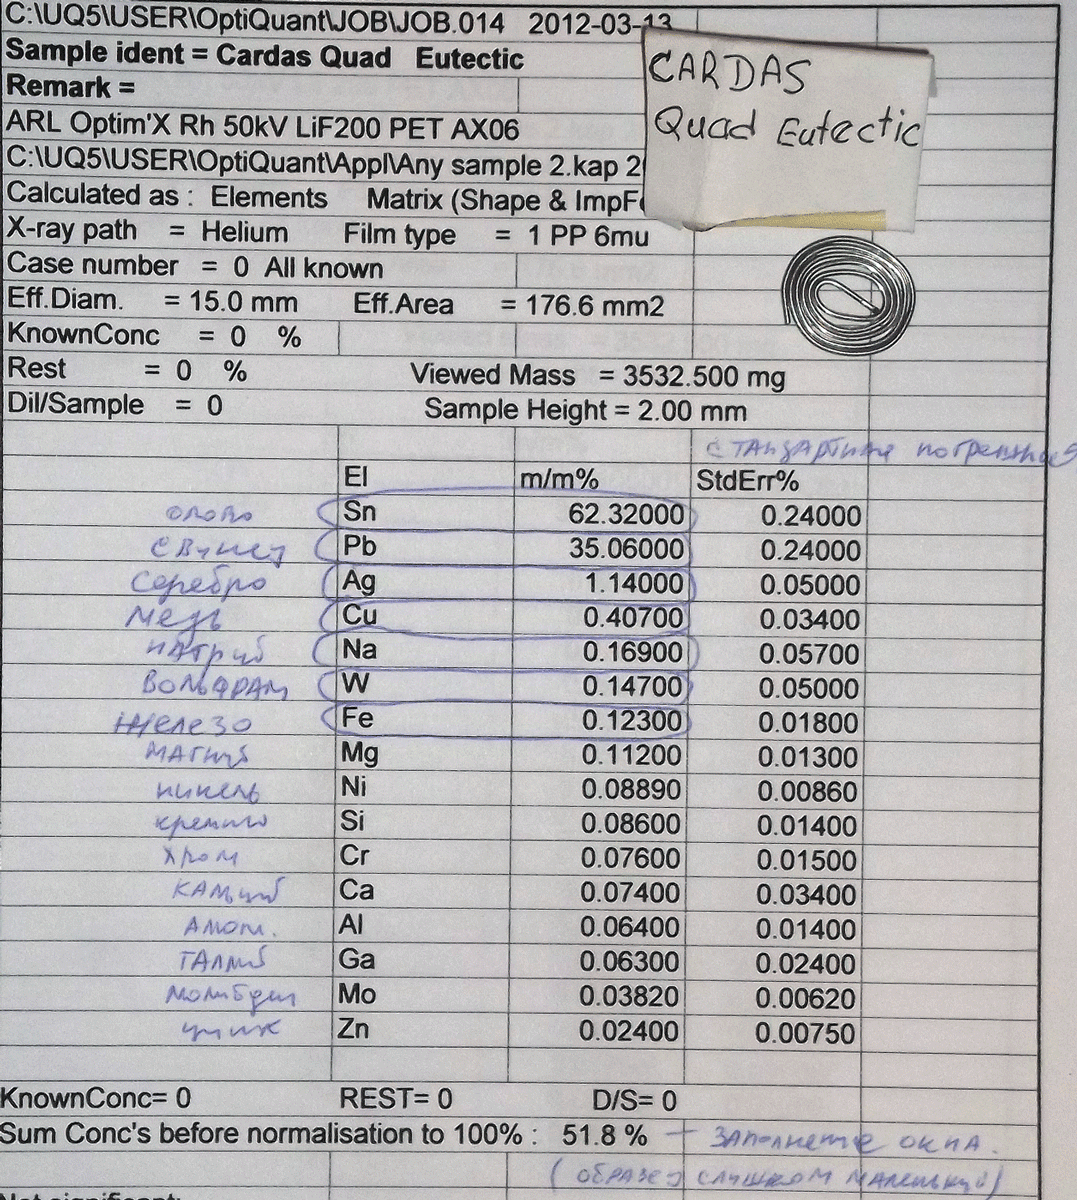 C:\UQ5\USER\OptiQuant\JOB\JOB.014 2012-03-13
Sample ident = Cardas Quad Eutectic
CARDAS
Quad Eutectic
Remark =
ARL Optim'X Rh 50kV LiF200 PET AX06
C:\UQ5\USER\OptiQuant\Appl\Any sample 2.kap
Calculated as : Elements Matrix (Shape & ImpF
X-ray path = Helium Film type = 1 PP 6mu
Case number = 0 All known
Eff.Diam. = 15.0 mm Eff.Area = 176.6 mm2
KnownConc = 0 %
Rest = 0 % Viewed Mass = 3532.500 mg
Dil/Sample = 0 Sample Height = 2.00 mm
стандартная погрешность
El m/m% StdErr%
олово Sn 62.32000 0.24000
свинец Pb 35.06000 0.24000
серебро Ag 1.14000 0.05000
медь Cu 0.40700 0.03400
натрий Na 0.16900 0.05700
вольфрам W 0.14700 0.05000
железо Fe 0.12300 0.01800
магний Mg 0.11200 0.01300
никель Ni 0.08890 0.00860
кремний Si 0.08600 0.01400
хром Cr 0.07600 0.01500
кальций Ca 0.07400 0.03400
алюм. Al 0.06400 0.01400
галлий Ga 0.06300 0.02400
молибден Mo 0.03820 0.00620
цинк Zn 0.02400 0.00750
KnownConc= 0 REST= 0 D/S= 0
Sum Conc's before normalisation to 100% : 51.8 % – заполнение окна.
(образец слишком маленький)